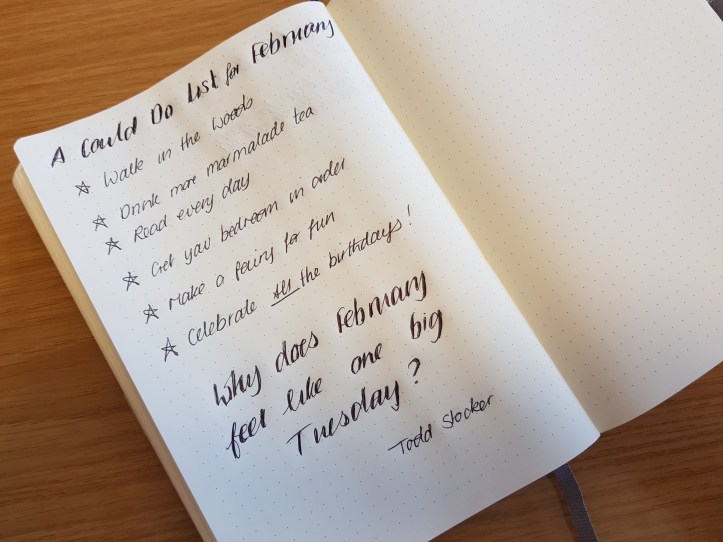 A Could Do List for February
Walk in the woods
Drink more marmalade tea
Read every day
Get your bedroom in order
Make a fairy for fun
Celebrate all the birthdays!
Why does February
feel like one big
Tuesday?
Todd Stocker